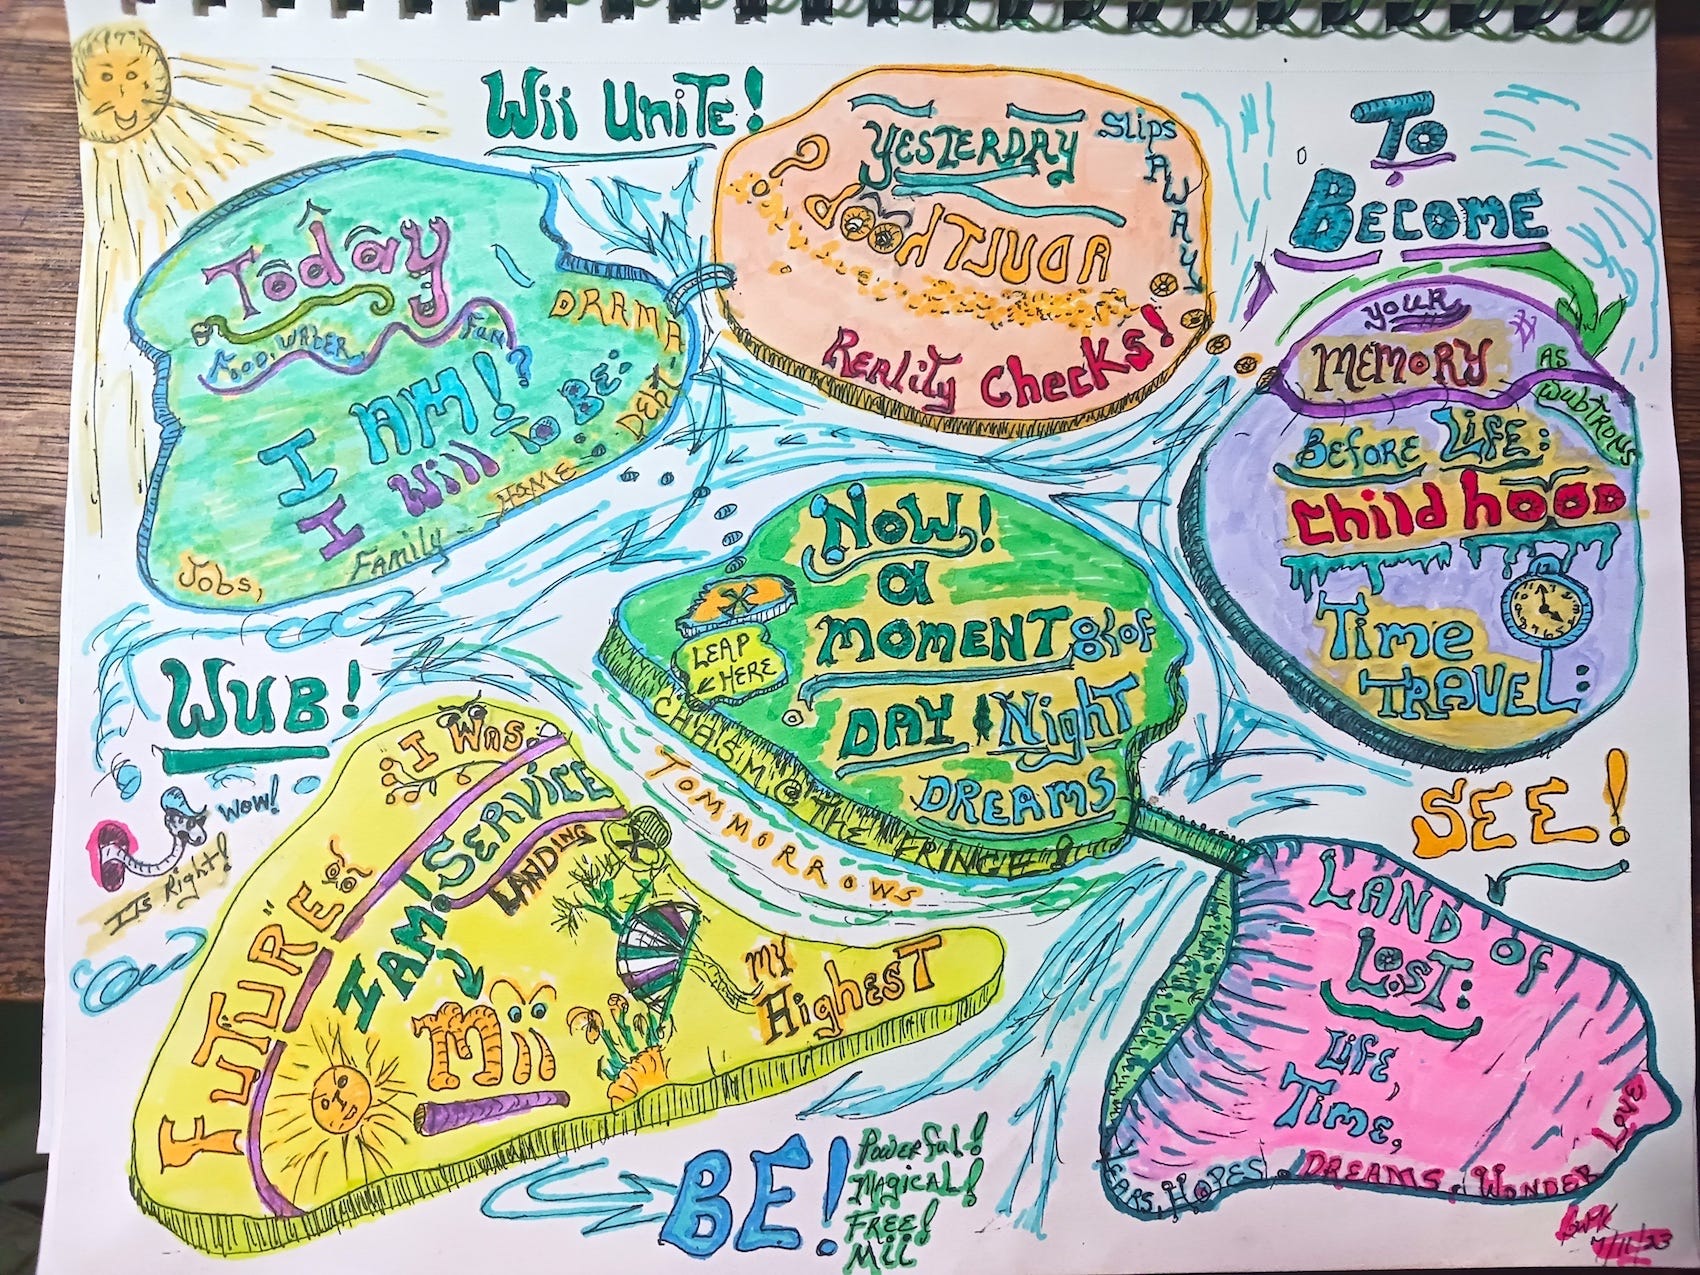 Wii Unite!
Today
Food, Water, Fun?
I Am!
I Will
to Be:
DRAMA
DEBT-
Home
Family
Jobs,
Yesterday
Slips
AWAY
ADULThood?
Reality Checks!
To
Become
Your
Memory
As
WubTrons
Before Life:
childhood
12
Time
Travel:
Now!
a
Moment & of
Day & Night
Dreams
LEAP
HERE
CHASM @ THE FRINGE!
TOMMORROWS
Wub!
Wow!
Its Right!
FUTURE
I Was
Service
LANDING
I AM!
Mii
My
Highest
SEE!
LAND of
Lost:
Life,
Time,
Years, Hopes, Dreams, Wonder
Love
BE!
Powerful!
Magical!
Free!
Mii
7/11/23